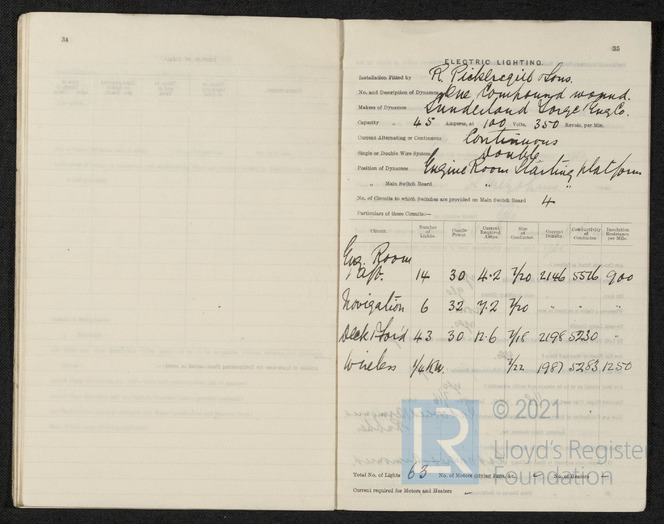 34
35
ELECTRIC LIGHTING.
Installation Fitted by R. Pickersgill & Sons.
No. and Description of Dynamos One Compound wound.
Makers of Dynamos Sunderland Forge & Eng Co.
Capacity " 45 Amperes, at 100 Volts, 350 Revols. per Min.
Current Alternating or Continuous Continuous
Single or Double Wire System Double
Position of Dynamos Engine Room Starting platform
" Main Switch Board " "
No. of Circuits to which Switches are provided on Main Switch Board 4
Particulars of these Circuits:—
Circuit. Number of Lights. Candle Power. Current Required Amps. Size of Conductor. Current Density. Conductivity of Conductor. Insulation Resistance per Mile.
Eng. Room
& Aft. 14 30 4.2 7/20 2146 5576 900
Navigation 6 32 7.2 7/20 " " "
Deck & For'd 43 30 12.6 7/18 2198 5230 "
Wireless 1/4 KW. 7/22 1987 5283 1250
Total No. of Lights 63 No. of Motors driving Fans, &c. – No. of Heaters –
Current required for Motors and Heaters –
LR
© 2021
Lloyd's Register
Foundation